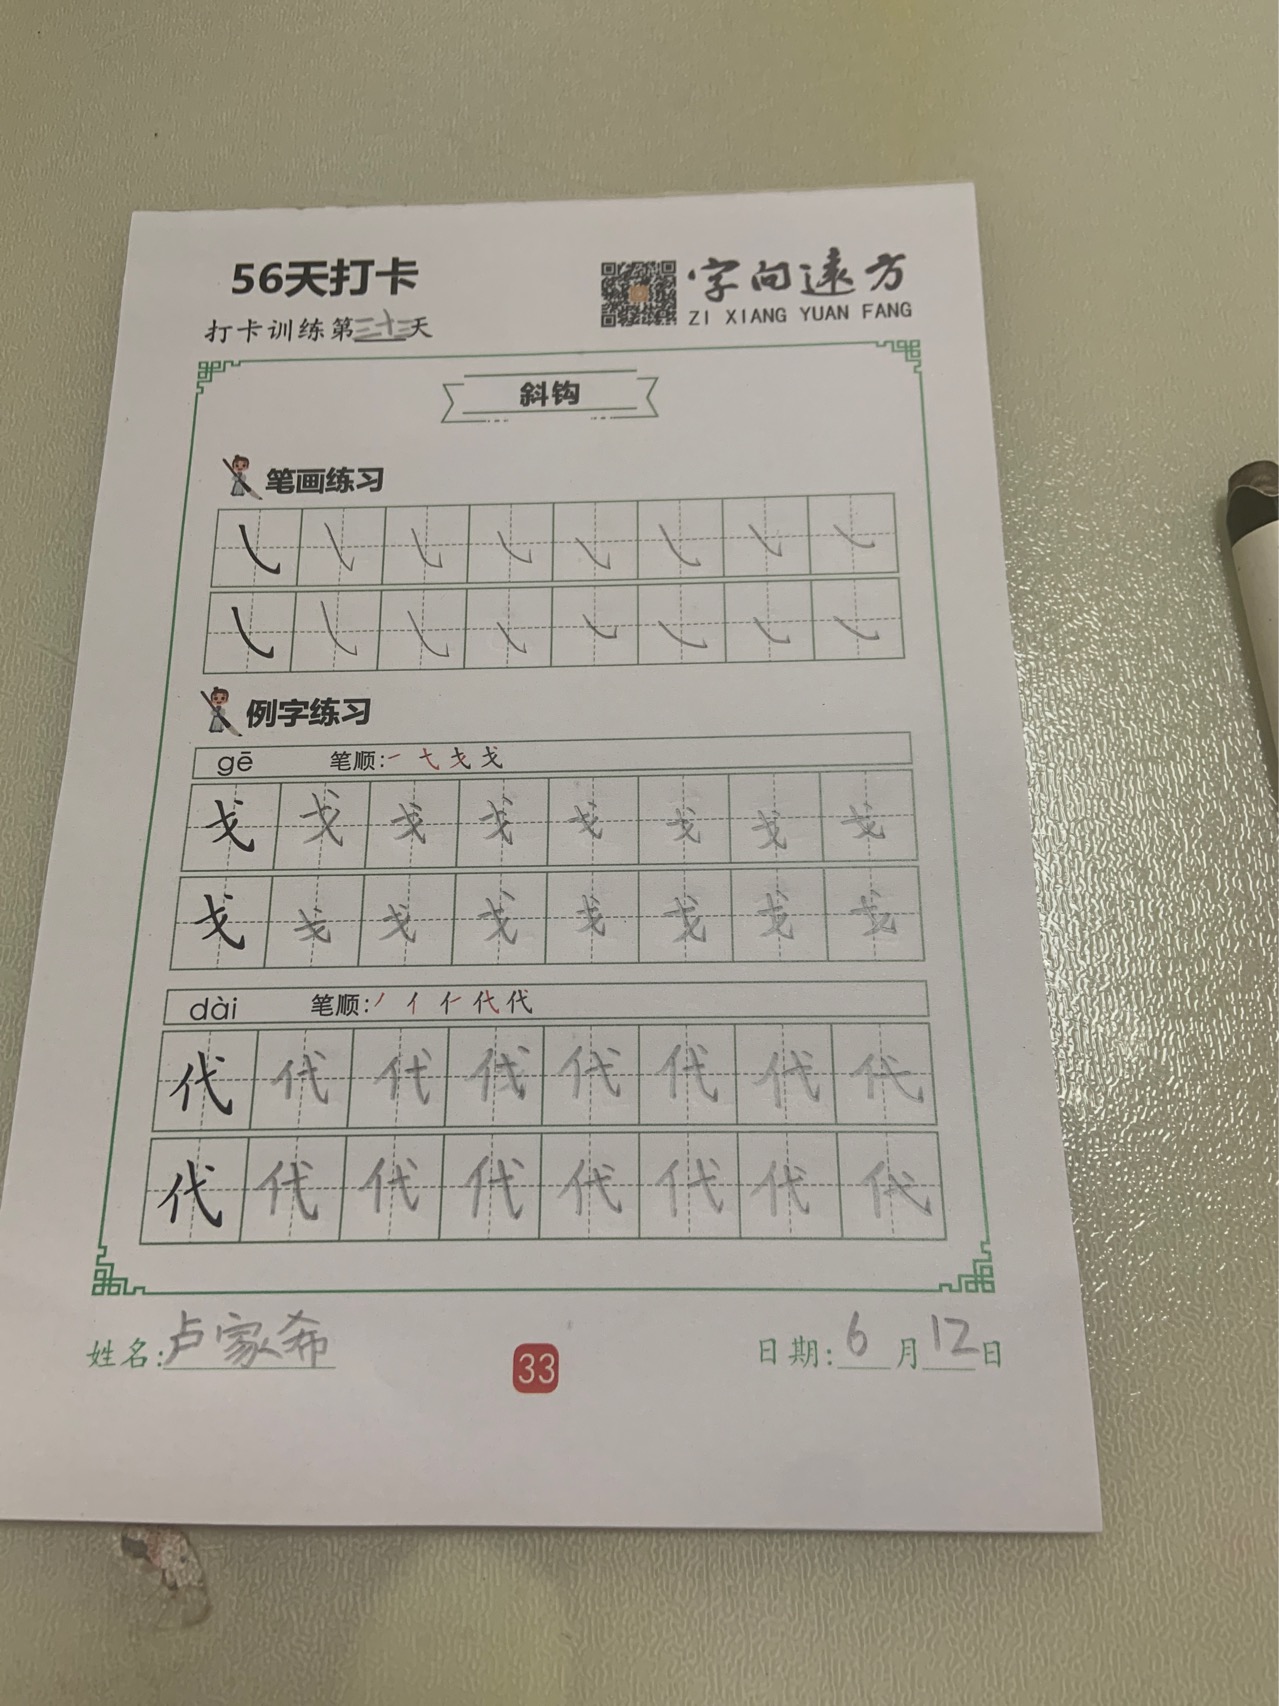 56天打卡
字向远方
ZI XIANG YUAN FANG
打卡训练第三十三天
斜钩
笔画练习
㇂ ㇂ ㇂ ㇂ ㇂ ㇂ ㇂ ㇂
㇂ ㇂ ㇂ ㇂ ㇂ ㇂ ㇂ ㇂
例字练习
gē 笔顺:一 弋 戈 戈
戈 戈 戈 戈 戈 戈 戈 戈
戈 戈 戈 戈 戈 戈 戈 戈
dài 笔顺:丿 亻 仁 代 代
代 代 代 代 代 代 代 代
代 代 代 代 代 代 代 代
姓名:卢家希
33
日期:6月12日